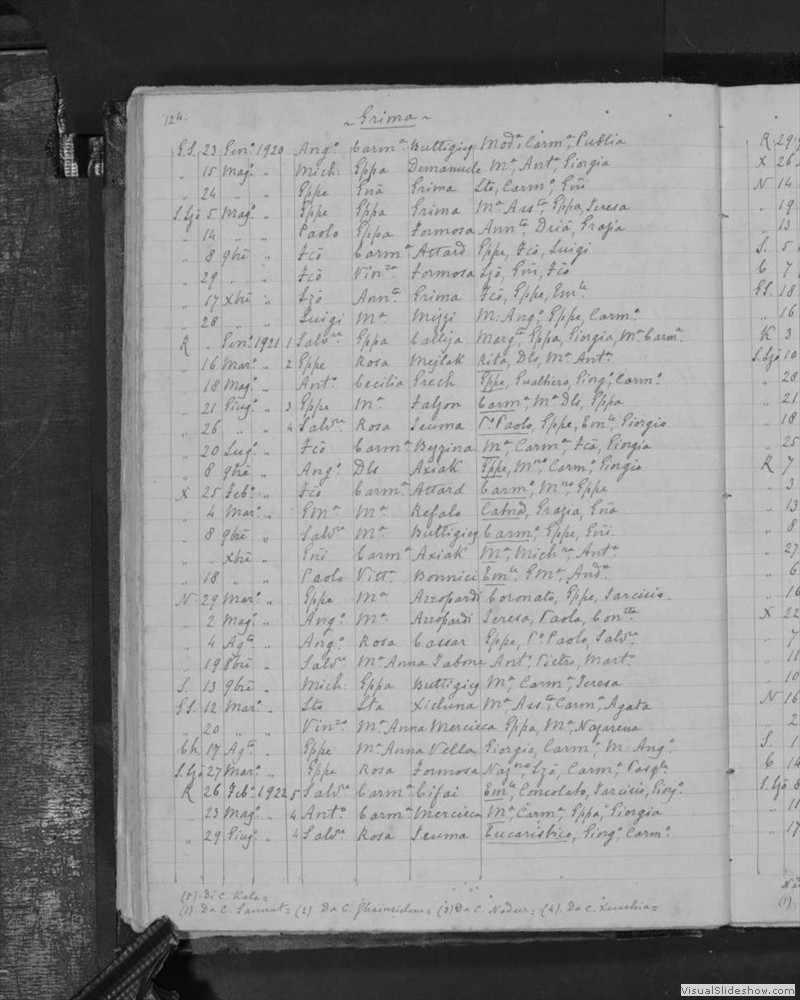 124.
~ Grima ~
G.S. 23 Gen.o 1920 Ang.o Carm.a Buttigieg Mod.a, Carm.a, Publia
" 15 Mag.o " Mich: Gppa Demanuele M.a, Ant.a, Giorgia
" 24 " " Gppe Gnã Grima Sto, Carm.o, Gñi
S.Ljõ 5 Mag.o " Gppe Gppa Grima M.a Ass.ta, Gppa, Teresa
" 14 " " Paolo Gppa Formosa Ann.ta, Grazia
" 8 9brē " Fcõ Carm.a Attard Gppe, Fcõ, Luigi
" 29 " " Fcõ Vin.za Formosa Ljõ, Gñi, Fcõ
" 17 Xbrē " Ljõ Ann.ta Grima Fcõ, Gppe, Em.le
" 28 " " Luigi M.a Mizzi M: Ang.o, Gppe, Carm.o
R " Gen.o 1921 1 Salv.re Gppa Calleja Marg.ta, Gppa, Giorgia, M.a Carm.a
" 16 Mar.o " 2 Gppe Rosa Mejlak Rita, Dls, M.a Ant.a
" 18 Mag.o " Ant.o Cecilia Grech Gppe, Gualtiero, Giorg.o, Carm.o
" 21 Giug.o " 3 Gppe M.a Falzon Carm.a, M.a Dls, Gppa
" 26 " " 4 Salv.re Rosa Seuma P.o Paolo, Gppe, Em.le, Giorgio
" 20 Lug.o " Fcõ Carm.a Bezzina M.a, Carm.a, Fcã, Giorgia
" 8 9brē " Ang.o Dls Axiak Gppe, M.no, Carm.o, Giorgio
X 25 Feb.o " Fcõ Carm.a Attard Carm.o, M.no, Gppe
" 4 Mar.o " M.a Refalo Grazia, Gnã
" 8 9brē " Salv.re M.a Buttigieg Carm.o, Gppe, Gñi
" " Xbrē " Gñi Carm.a Axiak M.a, Mich.na, Ant.a
" 18 " " Paolo Vitt.a Bonnici Em.le, And.a
N 29 Mar.o " Gppe M.a Azzopardi Coronato, Gppe, Tarcisio
" 2 Mag.o " Ang.o M.a Azzopardi Teresa, Paola, Con.tta
" 4 Ag.to " Ang.o Rosa Cassar Gppe, P.o Paolo, Salv.re
" 19 8brē " Salv.re M.a Anna Tabone Ant.o, Pietro, Mart.o
S. 13 9brē " Mich: Gppa Buttigieg M.a, Carm.a, Teresa
G.S. 12 Mar.o " Sto Sta Xicluna M.a Ass.ta, Carm.a, Agata
" 20 " " Vin.zo M.a Anna Mercieca Gppa, M.a, Nazarena
Ch. 17 Ag.to " Gppe M.a Anna Vella Giorgio, Carm.o, M: Ang.o
S.Ljõ 27 Mar.o " Gppe Rosa Formosa Naz.no, Ljõ, Carm.o, Pasq.le
R 26 Feb.o 1922 5 Salv.re Carm.a Cifai Em.le, Consolato, Tarcisio, Giorg.o
" 23 Mag.o " 4 Ant.o Carm.a Mercieca M.a, Carm.a, Gppa, Giorgia
" 29 Giug.o " 4 Salv.re Rosa Seuma Eucaristico, Giorg.o, Carm.o
(5). Di C. Kala =
(1). Da C. Sannat = (2). Da C. Ghainsielem = (3) Da C. Nadur = (4). Da C. Xeuchia =
R 29
X 26
N 14
" 19
" 13
S. 5
C 7
G.S. 18
" 16
K 3
S.Ljõ 10
" 28
" 21
" 18
" 25
R 7
" 3
" 13
" 8
" 27
" 6
" 16
X 22
" 7
" 11
" 10
N 16
" 2
S. 1
C 14
S.Ljõ 8
" 11
" 17
(1).
VisualSlideshow.com